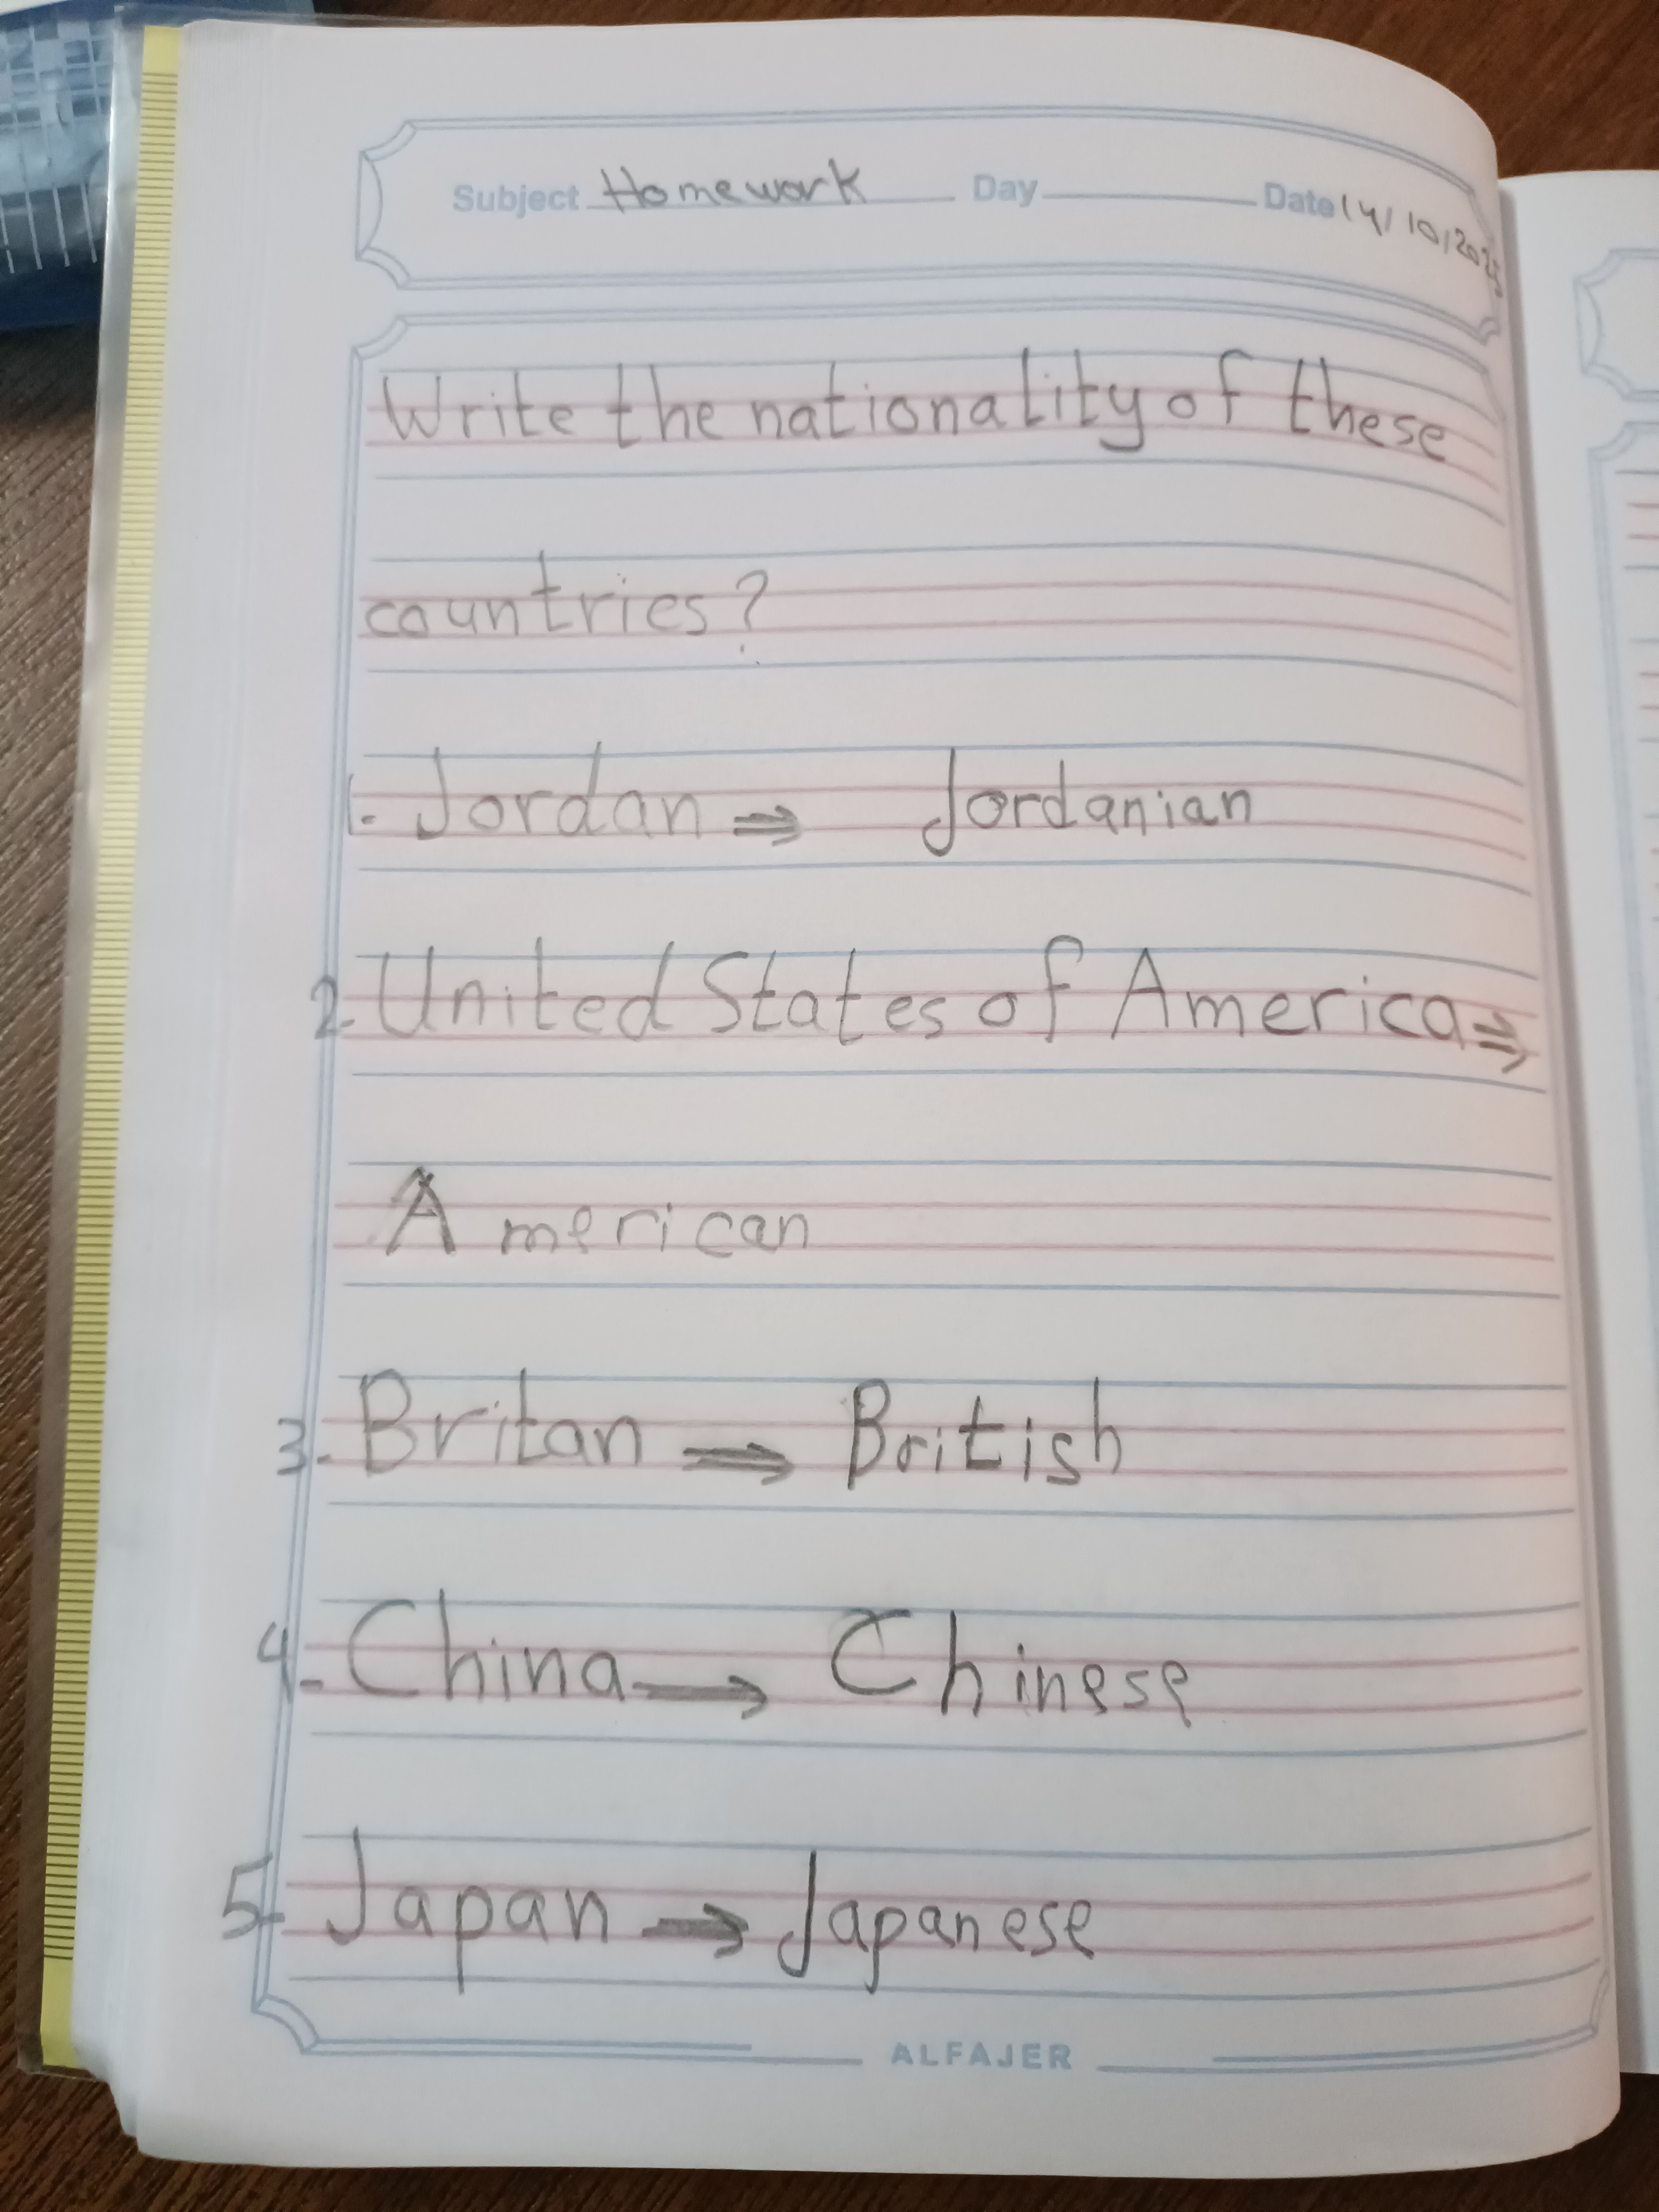 Subject Homework Day Date 14/10/2025
Write the nationality of these
countries?
1. Jordan ⇒ Jordanian
2. United States of America ⇒
American
3. Britan ⇒ British
4. China → Chinese
5. Japan → Japanese
ALFAJER